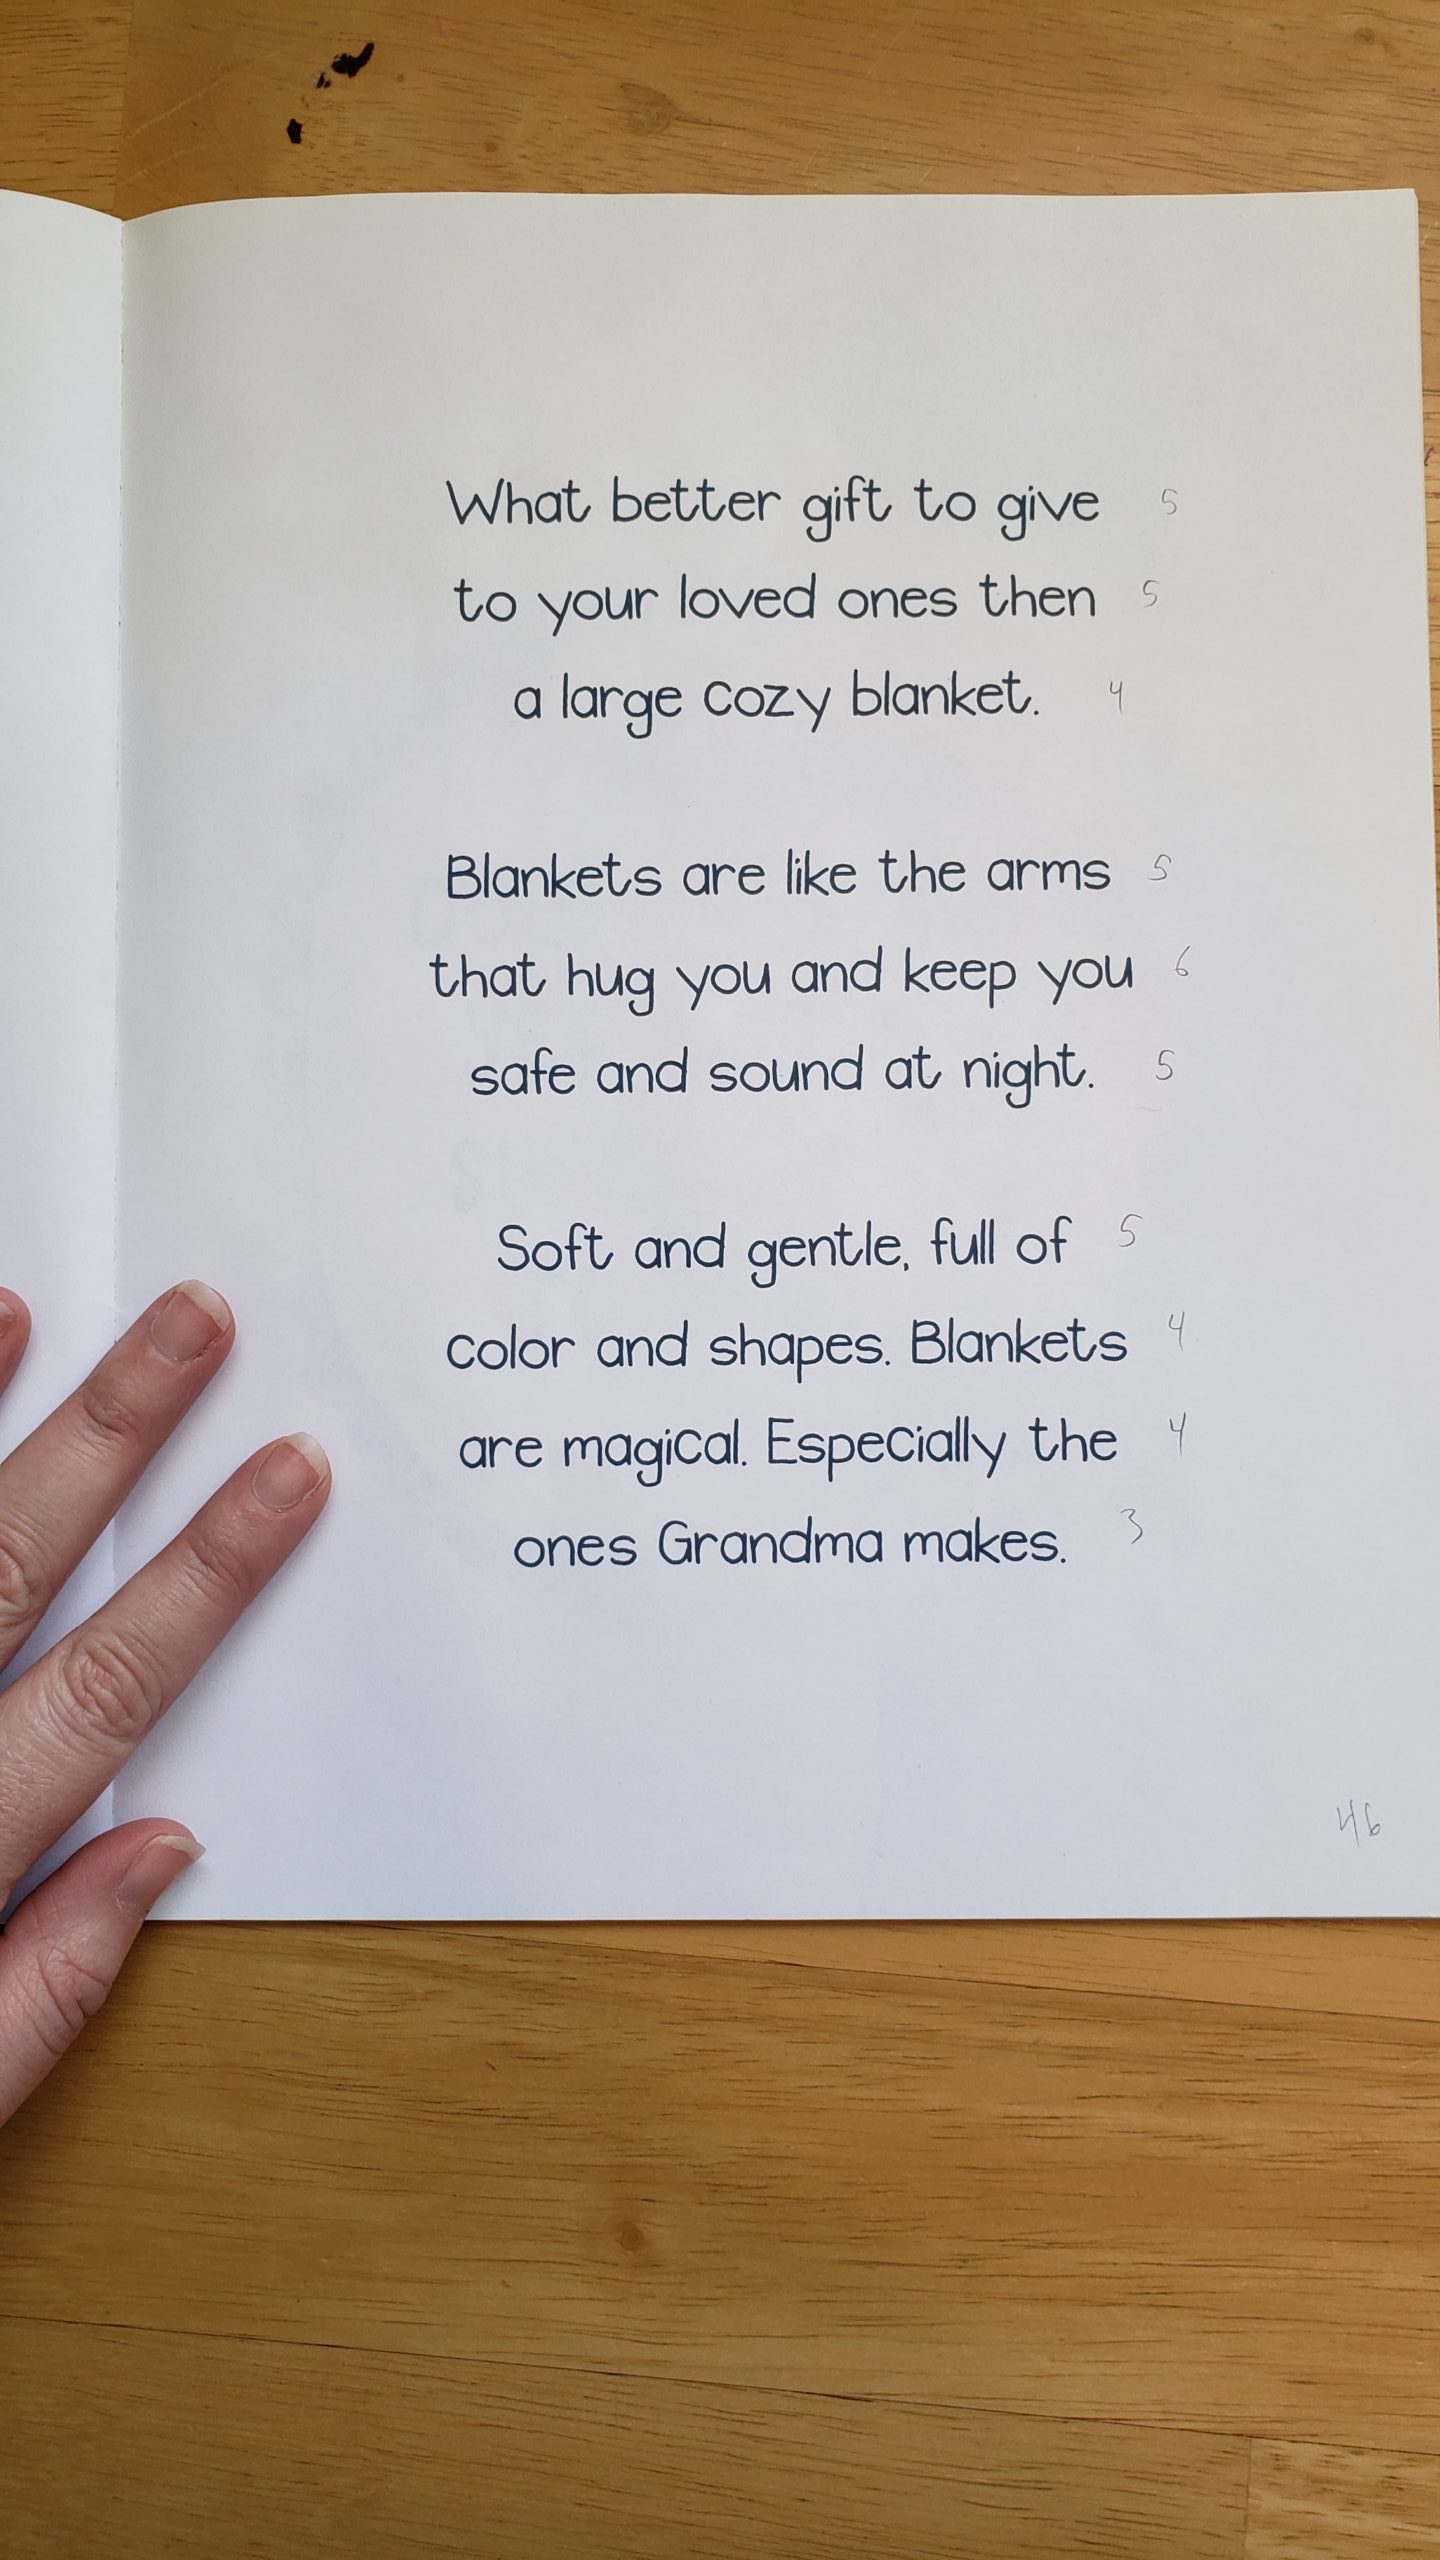 What better gift to give 5
to your loved ones then 5
a large cozy blanket. 4
Blankets are like the arms 5
that hug you and keep you 6
safe and sound at night. 5
Soft and gentle, full of 5
color and shapes. Blankets 4
are magical. Especially the 4
ones Grandma makes. 3
46